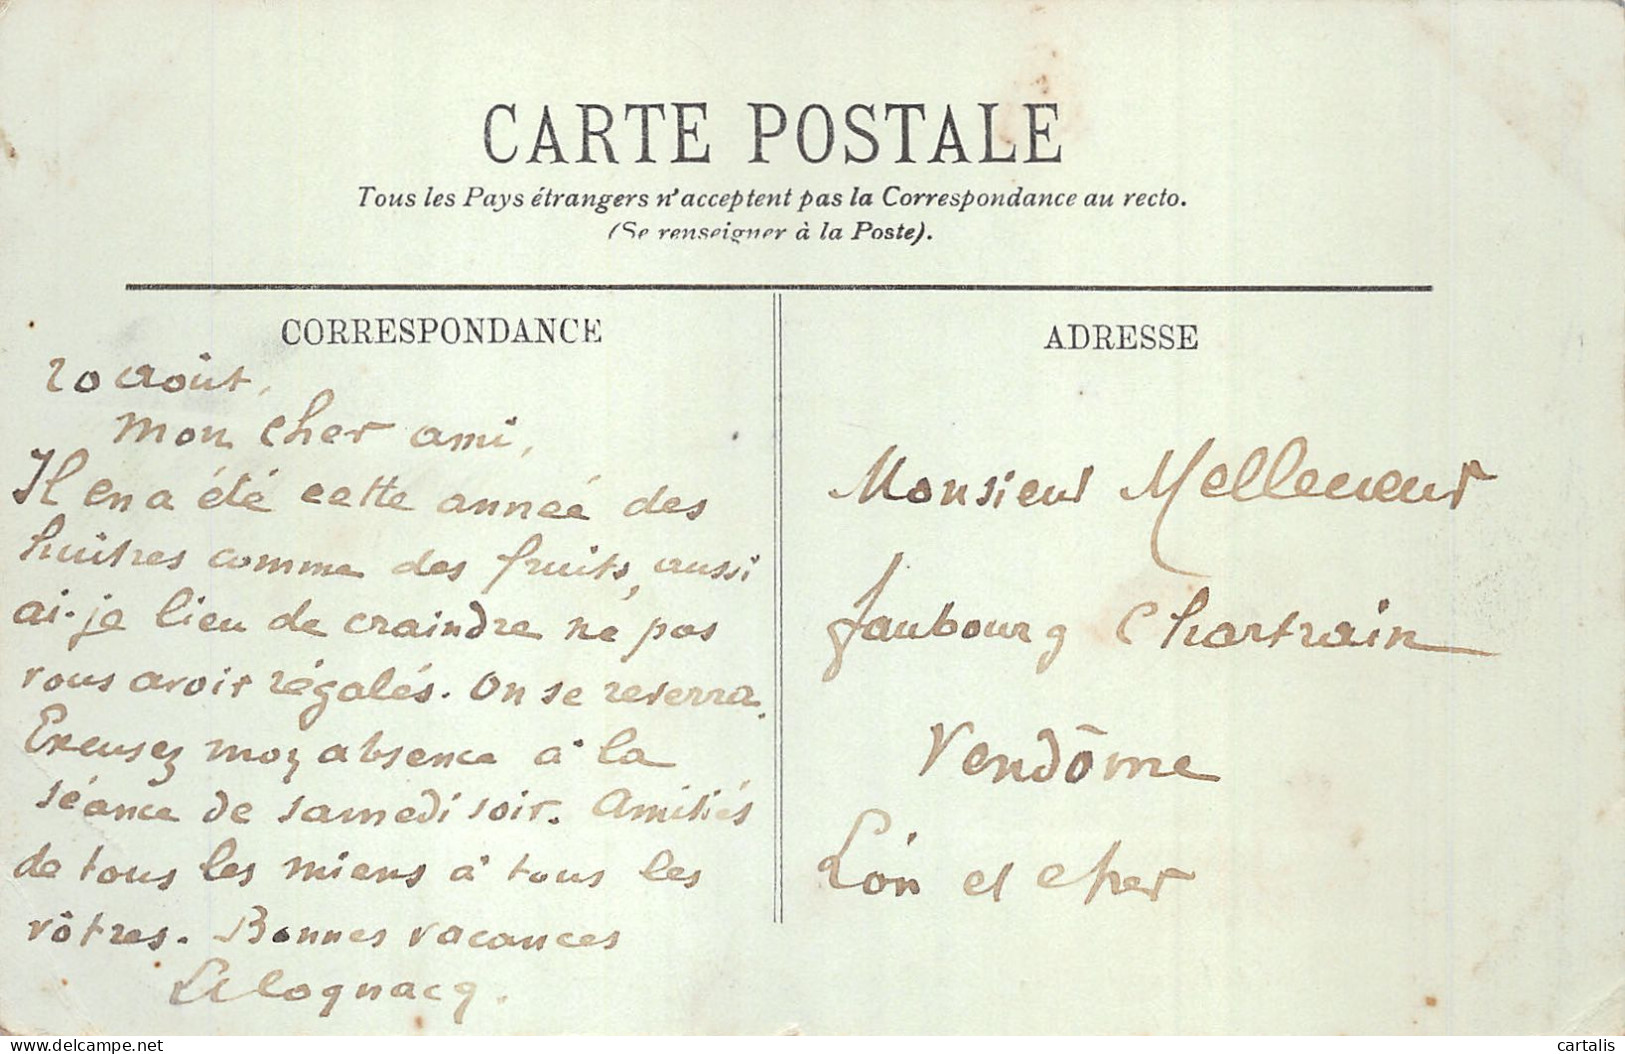 CARTE POSTALE
Tous les Pays étrangers n'acceptent pas la Correspondance au recto.
(Se renseigner à la Poste).
CORRESPONDANCE
20 août,
mon cher ami,
Il en a été cette année des
huitres comme des fruits, aussi
ai-je lieu de craindre ne pas
vous avoir régalés. On se reverra.
Excusez moy absence à la
séance de samedi soir. Amitiés
de tous les miens à tous les
vôtres. Bonnes vacances
ADRESSE
Monsieur
faubourg Chartrain
Vendôme
Loir et cher
delcampe.net
cartalis